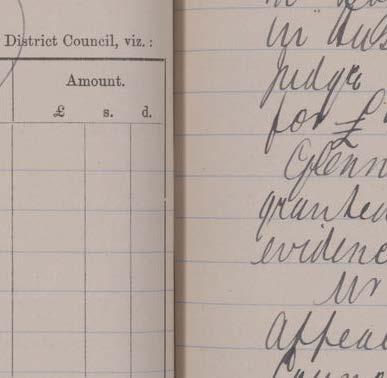 District Council, viz. :
Amount.
£ s. d.
in
judge
for £
Glenn
granted
evidenc
Mr
Appeal